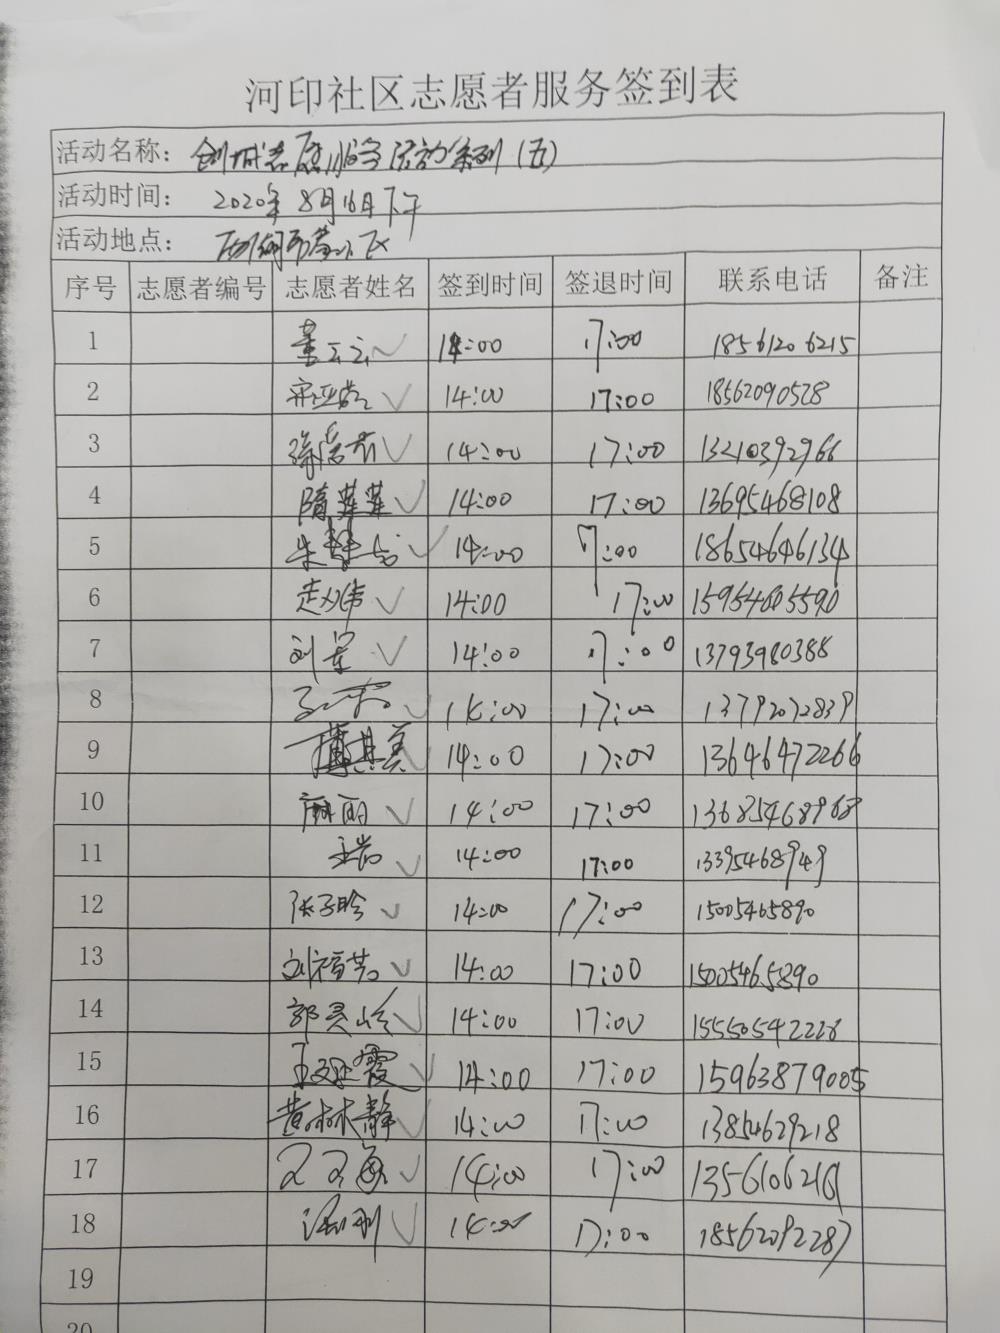 河印社区志愿者服务签到表
活动名称：创城志愿服务活动系列（五）
活动时间：2020年8月16日下午
活动地点：
序号 志愿者编号 志愿者姓名 签到时间 签退时间 联系电话 备注
1 董云云 14:00 17:00 18561206215
2 14:00 17:00 18562090528
3 14:00 17:00 13210392966
4 隋莲莲 14:00 17:00 13695468108
5 14:00 17:00 18654646134
6 14:00 17:00 15954605590
7 刘军 14:00 17:00 13793980388
8 14:00 17:00 13792072839
9 14:00 17:00 13646472266
10 14:00 17:00 13685468968
11 14:00 17:00 13395468949
12 张子晗 14:00 17:00 15005465890
13 刘福芸 14:00 17:00 15005465890
14 郭灵岭 14:00 17:00 15550542228
15 14:00 17:00 15963879005
16 黄林静 14:00 17:00 13854629218
17 14:00 17:00
18 14:00 17:00 18562092287
19
20